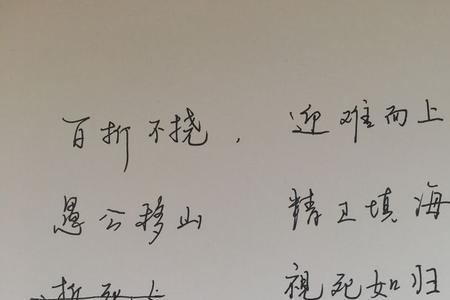 百折不挠， 迎难而上
愚公移山 精卫填海
视死如归